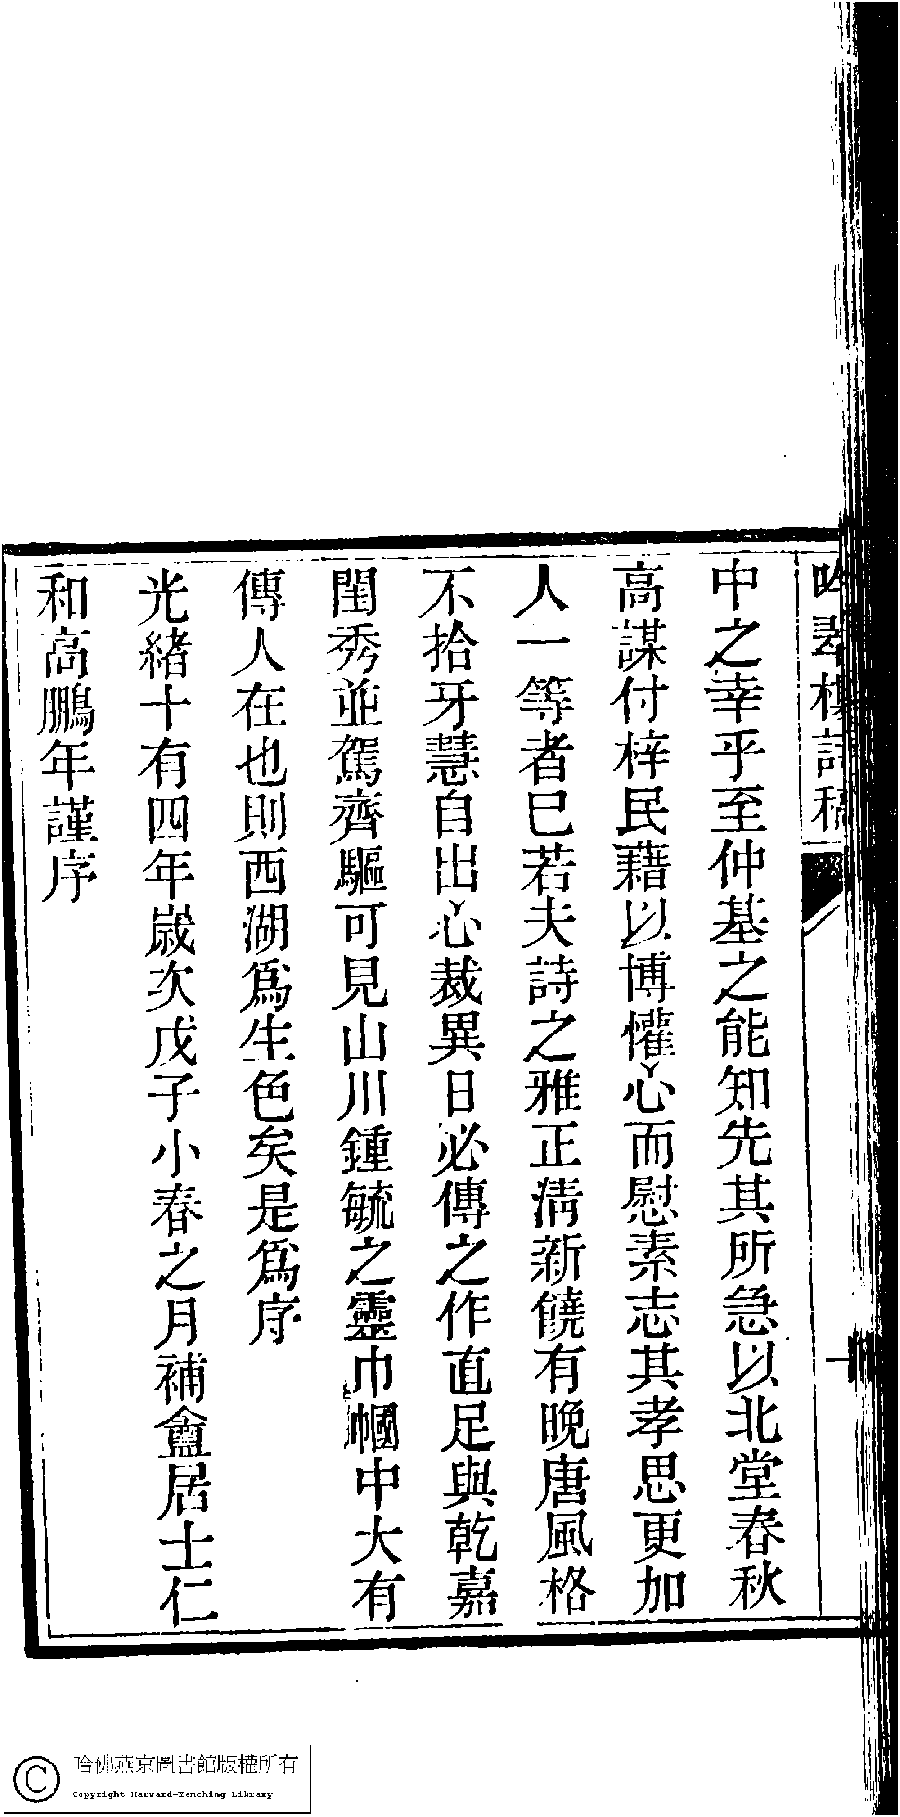 吟翠樓詩稿
中之幸乎至仲基之能知先其所急以北堂春秋
高謀付梓民藉以博懽心而慰素志其孝思更加
人一等者巳若夫詩之雅正淸新饒有晚唐風格
不拾牙慧自出心裁異日必傳之作直足與乾嘉
閨秀並駕齊驅可見山川鍾毓之靈巾幗中大有
傳人在也則西湖爲生色矣是爲序
光緒十有四年嵗次戊子小春之月補盦居士仁
和高鵬年謹序
哈佛燕京圖書館版權所有
Copyright Harvard-Yenching Library